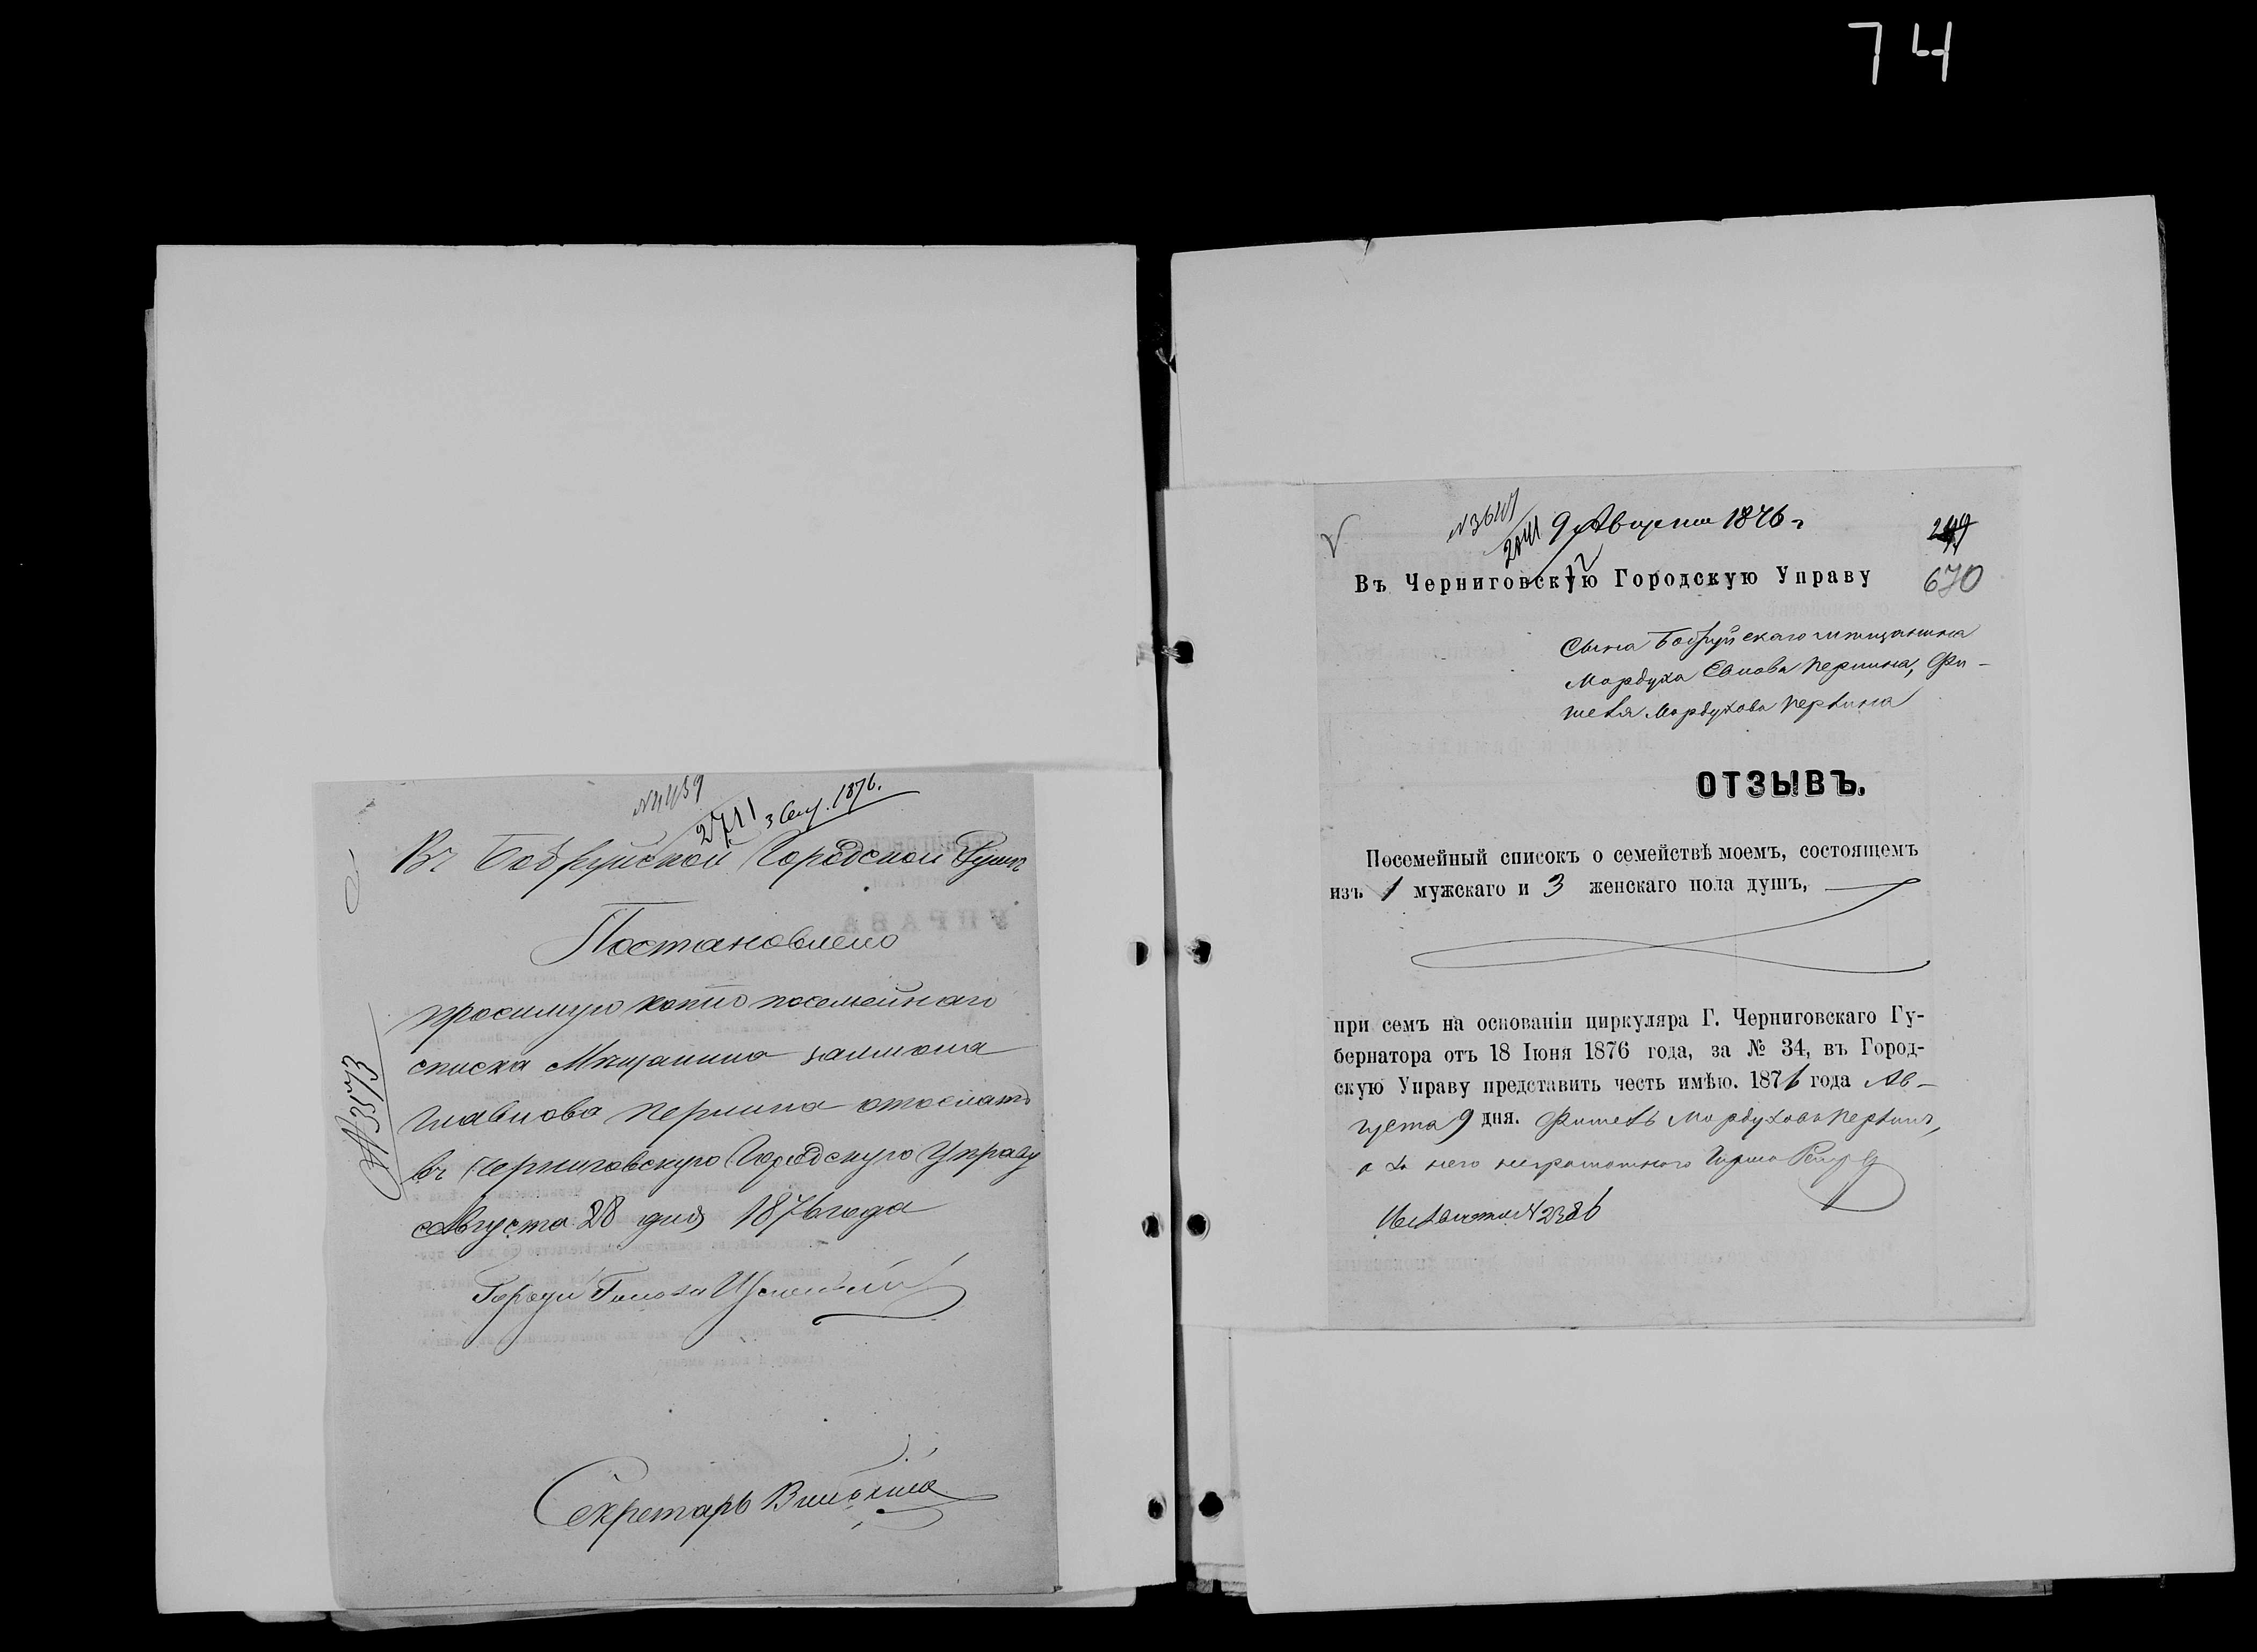 74
2711 3 Сен. 1876.
Въ Бобруйской Городской Думѣ
Постановлено
просимую копію посемейнаго
списка Мѣщанина
Перлина отослать
въ Черниговскую Городскую Управу
Августа 28 дня 1876 года
Голова
Секретарь
9 Августа 1876 г
249
Въ Черниговскую Городскую Управу
670
Сына Бобруйскаго мѣщанина
Мордуха Перкина, Фи-
шеля Мордухова Перкина
ОТЗЫВЪ.
Посемейный списокъ о семействѣ моемъ, состоящемъ
изъ 1 мужскаго и 3 женскаго пола душъ,
при семъ на основаніи циркуляра Г. Черниговскаго Гу-
бернатора отъ 18 Іюня 1876 года, за № 34, въ Город-
скую Управу представить честь имѣю. 1876 года Ав-
густа 9 дня. Фишель Мордуховъ Перкинъ,
а за него неграмотнаго